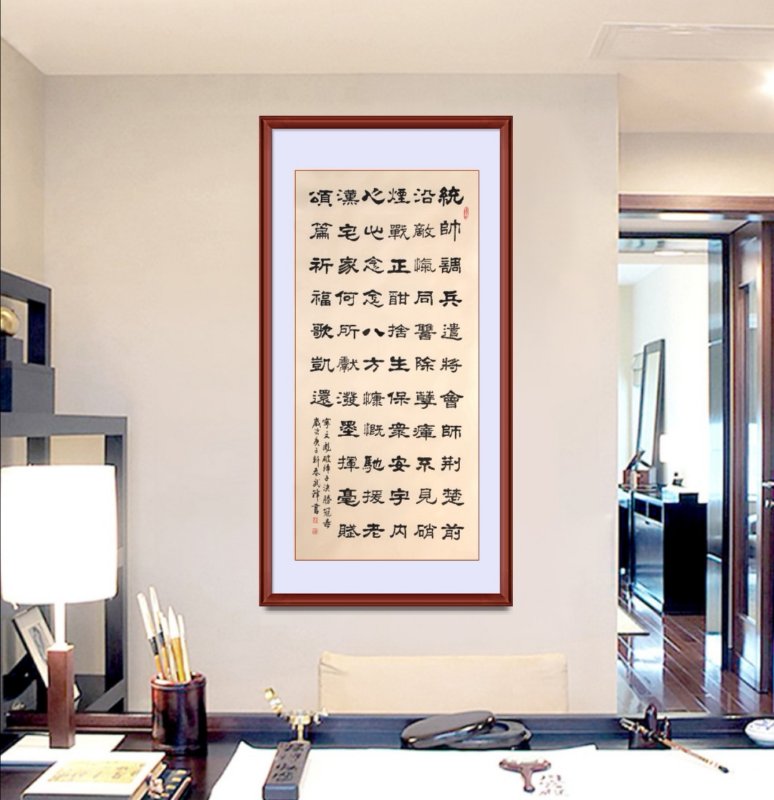 統帥調兵遣將會師荆楚前
沿敵愾同讐除孽瘴不見硝
煙戰正酣捨生保衆安宇内
心心念念八方慷慨馳援老
漢宅家何所獻潑墨揮毫賦
頌篇祈福歌凱還
寧文彪破陣子決勝冠毒
歲次庚子新春武
書